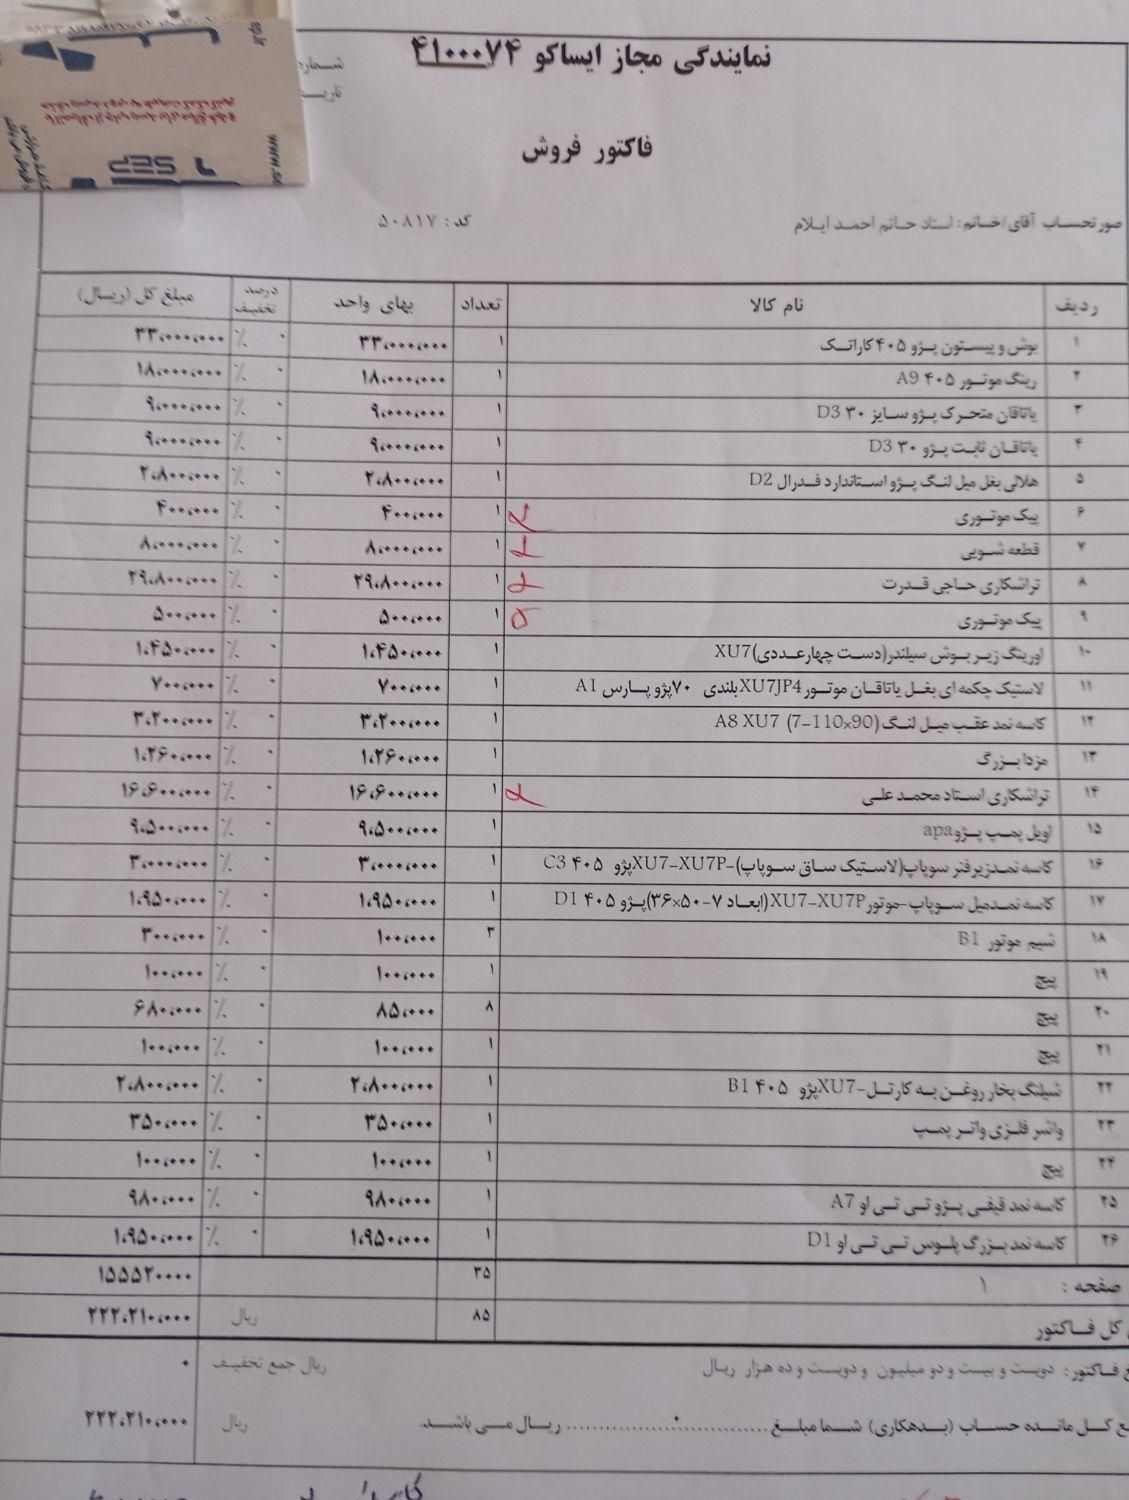 نمایندگی مجاز ایساکو ۴۱۰۰۰۷۴
شماره
فاکتور فروش
SEP
صورتحساب آقای/خانم: استاد حاتم احمد ایلام کد: ۵۰۸۱۷
ردیف نام کالا تعداد بهای واحد درصد تخفیف مبلغ کل (ریال)
۱ بوش و پیستون پژو ۴۰۵ کاراتک ۱ ۳۳،۰۰۰،۰۰۰ ۰ ٪ ۳۳،۰۰۰،۰۰۰
۲ رینگ موتور ۴۰۵ A9 ۱ ۱۸،۰۰۰،۰۰۰ ۰ ٪ ۱۸،۰۰۰،۰۰۰
۳ یاتاقان متحرک پژو سایز ۳۰ D3 ۱ ۹،۰۰۰،۰۰۰ ۰ ٪ ۹،۰۰۰،۰۰۰
۴ یاتاقان ثابت پژو ۳۰ D3 ۱ ۹،۰۰۰،۰۰۰ ۰ ٪ ۹،۰۰۰،۰۰۰
۵ هلالی بغل میل لنگ پژو استاندارد فدرال D2 ۱ ۲،۸۰۰،۰۰۰ ۰ ٪ ۲،۸۰۰،۰۰۰
۶ پیک موتوری ۱ ۴۰۰،۰۰۰ ۰ ٪ ۴۰۰،۰۰۰
۷ قطعه شویی ۱ ۸،۰۰۰،۰۰۰ ۰ ٪ ۸،۰۰۰،۰۰۰
۸ تراشکاری حاجی قدرت ۱ ۲۹،۸۰۰،۰۰۰ ۰ ٪ ۲۹،۸۰۰،۰۰۰
۹ پیک موتوری ۱ ۵۰۰،۰۰۰ ۰ ٪ ۵۰۰،۰۰۰
۱۰ اورینگ زیر بوش سیلندر(دست چهارعددی)XU7 ۱ ۱،۴۵۰،۰۰۰ ۰ ٪ ۱،۴۵۰،۰۰۰
۱۱ لاستیک چکمه ای بغل یاتاقان موتورXU7JP4بلندی ۷۰پژو پارس A1 ۱ ۷۰۰،۰۰۰ ۰ ٪ ۷۰۰،۰۰۰
۱۲ کاسه نمد عقب میل لنگ (90×110-7) A8 XU7 ۱ ۳،۲۰۰،۰۰۰ ۰ ٪ ۳،۲۰۰،۰۰۰
۱۳ مزدا بزرگ ۱ ۱،۲۶۰،۰۰۰ ۰ ٪ ۱،۲۶۰،۰۰۰
۱۴ تراشکاری استاد محمد علی ۱ ۱۶،۶۰۰،۰۰۰ ۰ ٪ ۱۶،۶۰۰،۰۰۰
۱۵ اویل پمپ پژوapa ۱ ۹،۵۰۰،۰۰۰ ۰ ٪ ۹،۵۰۰،۰۰۰
۱۶ کاسه نمدزیرفنر سوپاپ(لاستیک ساق سوپاپ)-XU7-XU7Pپژو ۴۰۵ C3 ۱ ۳،۰۰۰،۰۰۰ ۰ ٪ ۳،۰۰۰،۰۰۰
۱۷ کاسه نمدمیل سوپاپ-موتورXU7-XU7P(ابعاد ۷-۵۰×۳۶)پژو ۴۰۵ D1 ۱ ۱،۹۵۰،۰۰۰ ۰ ٪ ۱،۹۵۰،۰۰۰
۱۸ شیم موتور B1 ۳ ۱۰۰،۰۰۰ ۰ ٪ ۳۰۰،۰۰۰
۱۹ پیچ ۱ ۱۰۰،۰۰۰ ۰ ٪ ۱۰۰،۰۰۰
۲۰ پیچ ۸ ۸۵،۰۰۰ ۰ ٪ ۶۸۰،۰۰۰
۲۱ پیچ ۱ ۱۰۰،۰۰۰ ۰ ٪ ۱۰۰،۰۰۰
۲۲ شیلنگ بخار روغن به کارتل-XU7پژو ۴۰۵ B1 ۱ ۲،۸۰۰،۰۰۰ ۰ ٪ ۲،۸۰۰،۰۰۰
۲۳ واشر فلزی واتر پمپ ۱ ۳۵۰،۰۰۰ ۰ ٪ ۳۵۰،۰۰۰
۲۴ پیچ ۱ ۱۰۰،۰۰۰ ۰ ٪ ۱۰۰،۰۰۰
۲۵ کاسه نمد قیفی پژو تی تی او A7 ۱ ۹۸۰،۰۰۰ ۰ ٪ ۹۸۰،۰۰۰
۲۶ کاسه نمد بزرگ پلوس تی تی او D1 ۱ ۱،۹۵۰،۰۰۰ ۰ ٪ ۱،۹۵۰،۰۰۰
صفحه : ۱ ۳۵ ۱۵۵۵۲۰۰۰۰
کل فاکتور ۸۵ ریال ۲۲۲،۲۱۰،۰۰۰
فاکتور: دویست و بیست و دو میلیون و دویست و ده هزار ریال ریال جمع تخفیف ۰
کل مانده حساب (بدهکاری) شما مبلغ ۰ ریال می باشد. ریال ۲۲۲،۲۱۰،۰۰۰